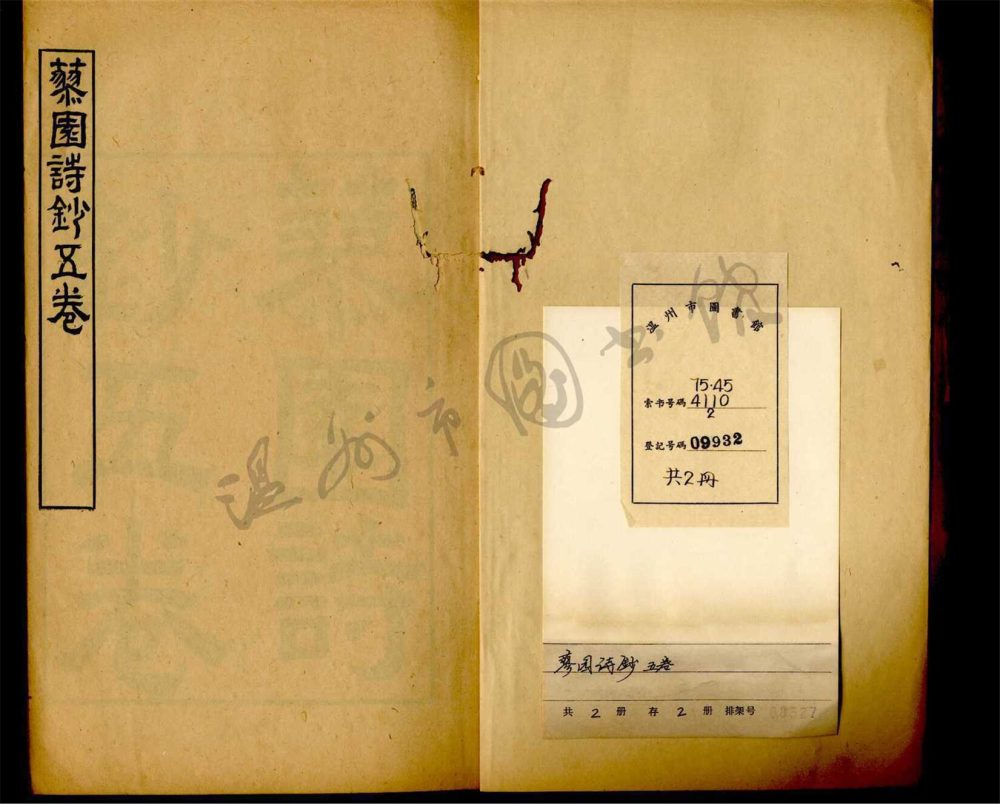 蓼園詩鈔五卷
温州市圖書館
15·45
索书号碼 4110
2
登記号碼 09932
共2冊
温州市图书馆
蓼园诗钞 五卷
共 2 册 存 2 册 排架号